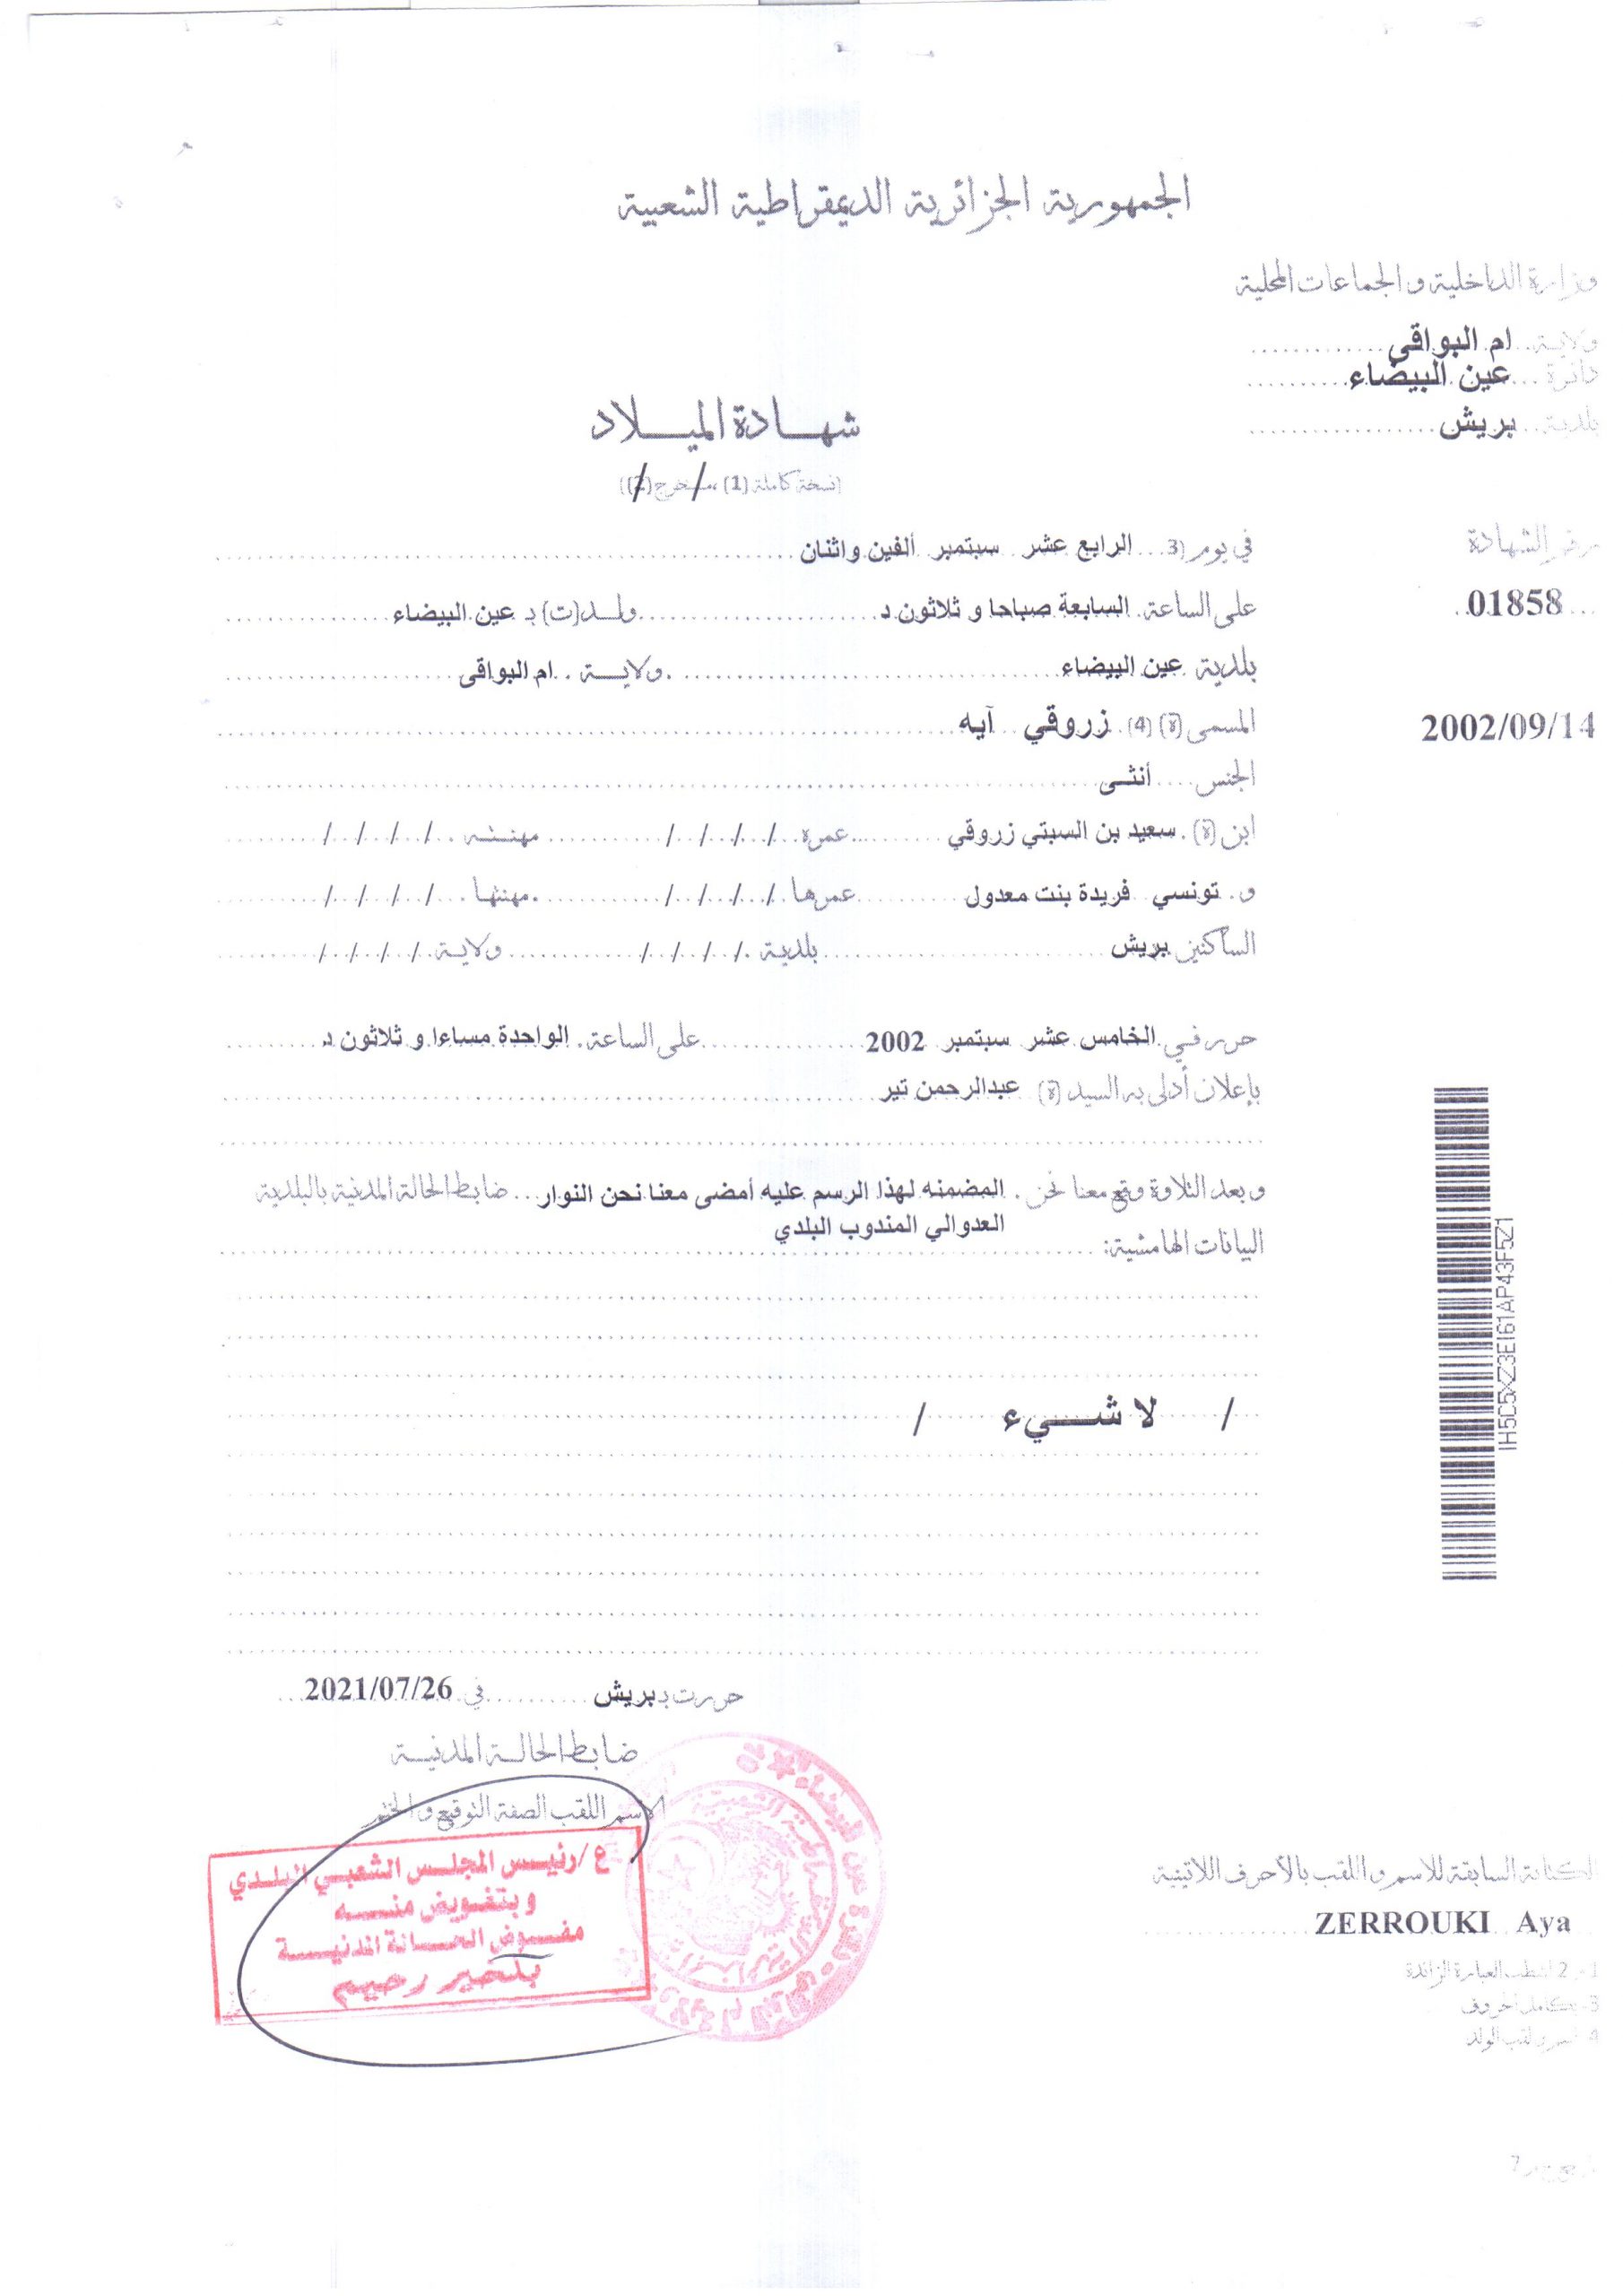 الجمهورية الجزائرية الديمقراطية الشعبية
وزارة الداخلية والجماعات المحلية
ولاية ام البواقي
دائرة عين البيضاء
بلدية بريش
شهادة الميلاد
(نسخة كاملة (1)، مستخرج (2))
رقم الشهادة
01858
2002/09/14
في يوم (3 الرابع عشر سبتمبر ألفين واثنان
على الساعة. السابعة صباحا و ثلاثون د ولد(ت) بـ عين البيضاء
بلدية عين البيضاء ولاية ام البواقي
المسمى (ة) (4) زروقي آيه
الجنس أنثى
ابن (ة) سعيد بن السبتي زروقي عمره / / / / مهنته / / / /
و. تونسي فريدة بنت معدول عمرها / / / / مهنتها / / / /
الساكنين بريش بلدية / / / / ولاية / / / /
حرر في الخامس عشر سبتمبر 2002 على الساعة. الواحدة مساءا و ثلاثون د
بإعلان أدلى به السيد (ة) عبدالرحمن تير
و بعد التلاوة وقع معنا نحن. المضمنه لهذا الرسم عليه أمضى معنا نحن النوار ضابط الحالة المدنية بالبلدية
العدوالي المندوب البلدي
البيانات الهامشية:
/ لا شيء /
IH5C5XZ3EI61AP43F5Z1
حررت بـ بريش في 2021/07/26
ضابط الحالة المدنية
الاسم اللقب الصفة التوقيع و الختم
ع/رئيس المجلس الشعبي البلدي
و بتفويض منه
مفوض الحالة المدنية
بلخير رحيم
الكتابة السابقة للاسم و اللقب بالأحرف اللاتينية
ZERROUKI Aya
1-، 2 اشطب العبارة الزائدة
3- بكامل الحروف
4- اسم و لقب الولد